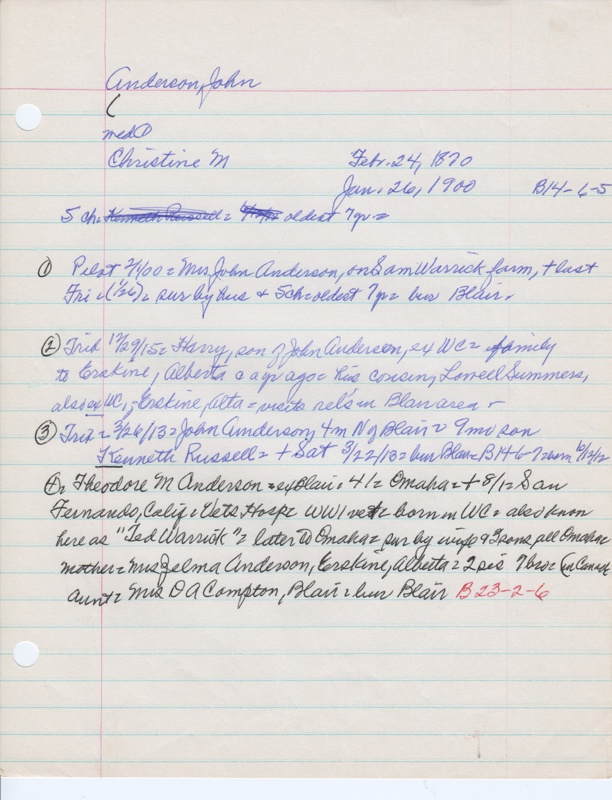 Anderson, John
(
med ①
Christine M Febr. 24, 1870
Jan. 26, 1900 B14-6-5
5 ch = Kenneth Russell = oldest 7 yr =
① Pilot 2/1/00 = Mrs John Anderson, on Sam Warrick farm, + last
Fri = (1/26) = sur by hus + 5ch = oldest 7yr = bur Blair.
② Trib 12/29/15 = Harry, son of John Anderson, ex WC = family
to Erskine, Alberta a yr ago = his cousin, Lowell Summers,
also ex WC, = Erskine, Alta = visits rel's in Blair area
③ Trib = 3/26/13 = John Anderson, 4m N of Blair = 9 mo son
Kenneth Russell = + Sat 3/22/13 = bur Blair = B14-6-7 = born 6/12/12
Theodore M Anderson = ex Blair, 41 = Omaha = + 8/1 = San
Fernando, Calif = Vets Hosp = WW1 vet = born in WC = also know
here as "Ted Warrick" = later to Omaha = sur by wife & 2 sons, all Omaha =
mother = Mrs Zelma Anderson, Erskine, Alberta = 2 sis 7 bro = (in Canada
aunt = Mrs D A Compton, Blair = bur Blair B 23-2-6